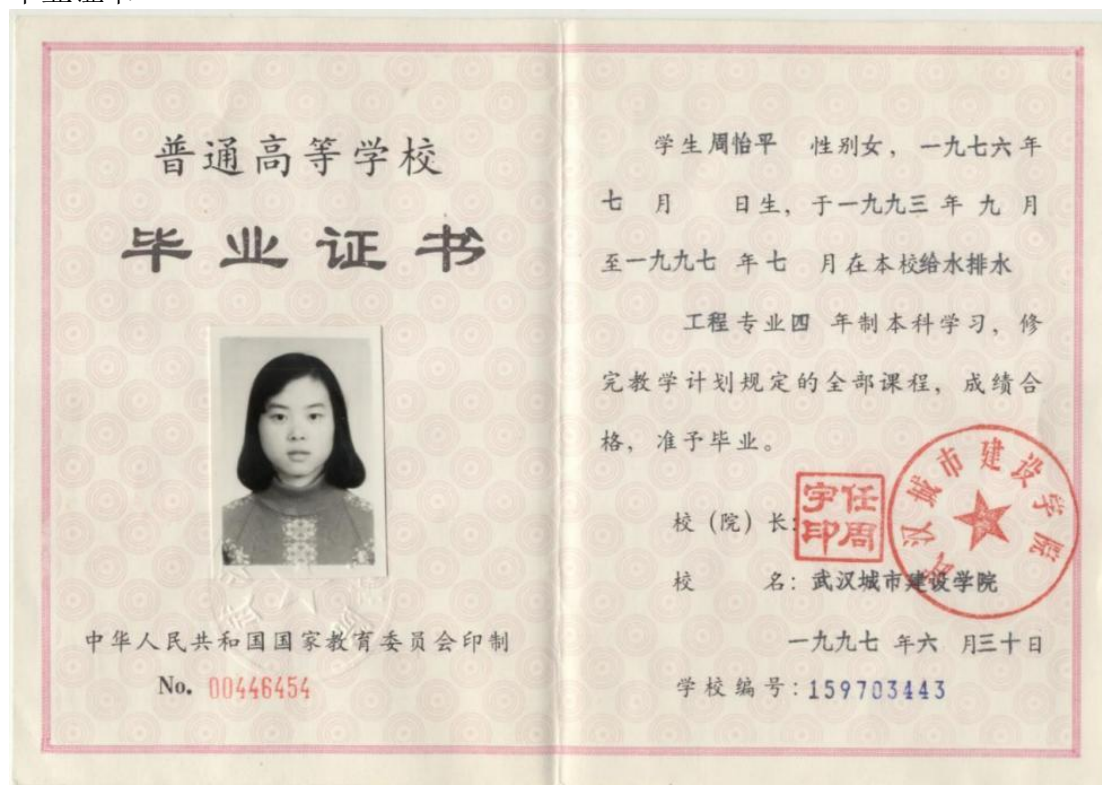 普通高等学校
毕业证书
中华人民共和国国家教育委员会印制
No. 00446454
学生周怡平 性别女，一九七六年
七 月 日生，于一九九三 年 九 月
至一九九七 年 七 月在本校给水排水
工程专业四 年制本科学习，修
完教学计划规定的全部课程，成绩合
格，准予毕业。
校（院）长：
任周宇印
校 名：武汉城市建设学院
武汉城市建设学院
一九九七 年六 月三十日
学校编号：159703443